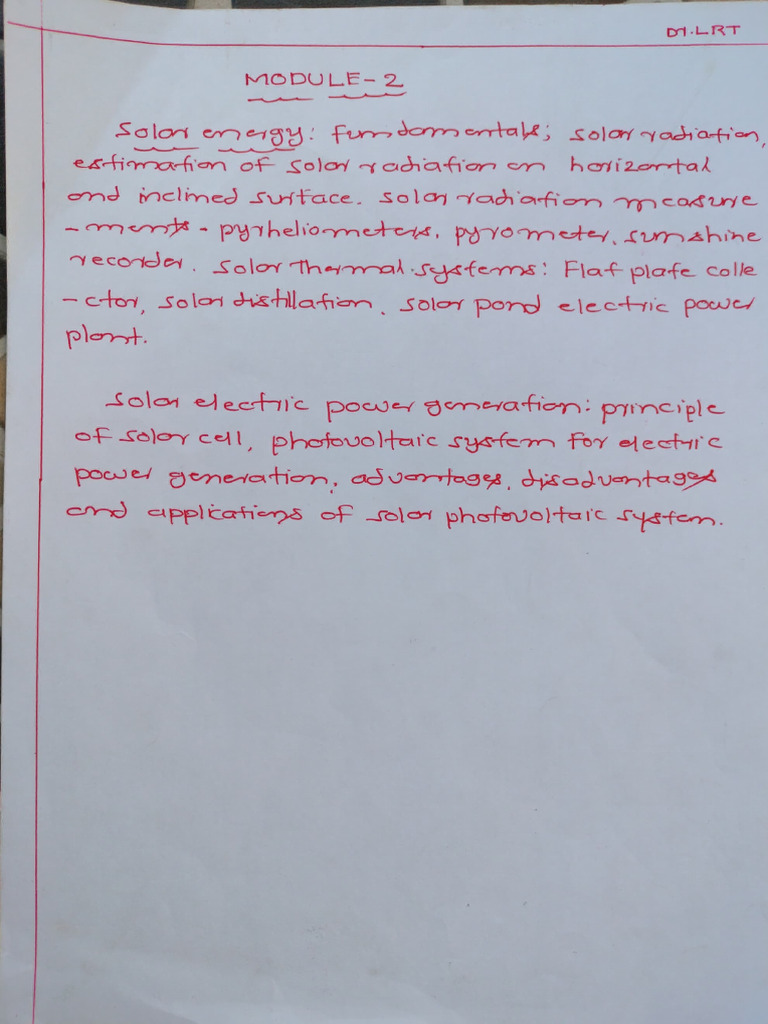 D1.LRT
MODULE-2
Solar energy: fundamentals; solar radiation,
estimation of solar radiation on horizontal
and inclined surface. solar radiation measure
-ments - pyrheliometers, pyrometer, sunshine
recorder. solar thermal systems: Flat plate colle
-ctor, solar distillation, solar pond electric power
plant.
solar electric power generation: principle
of solar cell, photovoltaic system for electric
power generation, advantages, disadvantages
and applications of solar photovoltaic system.